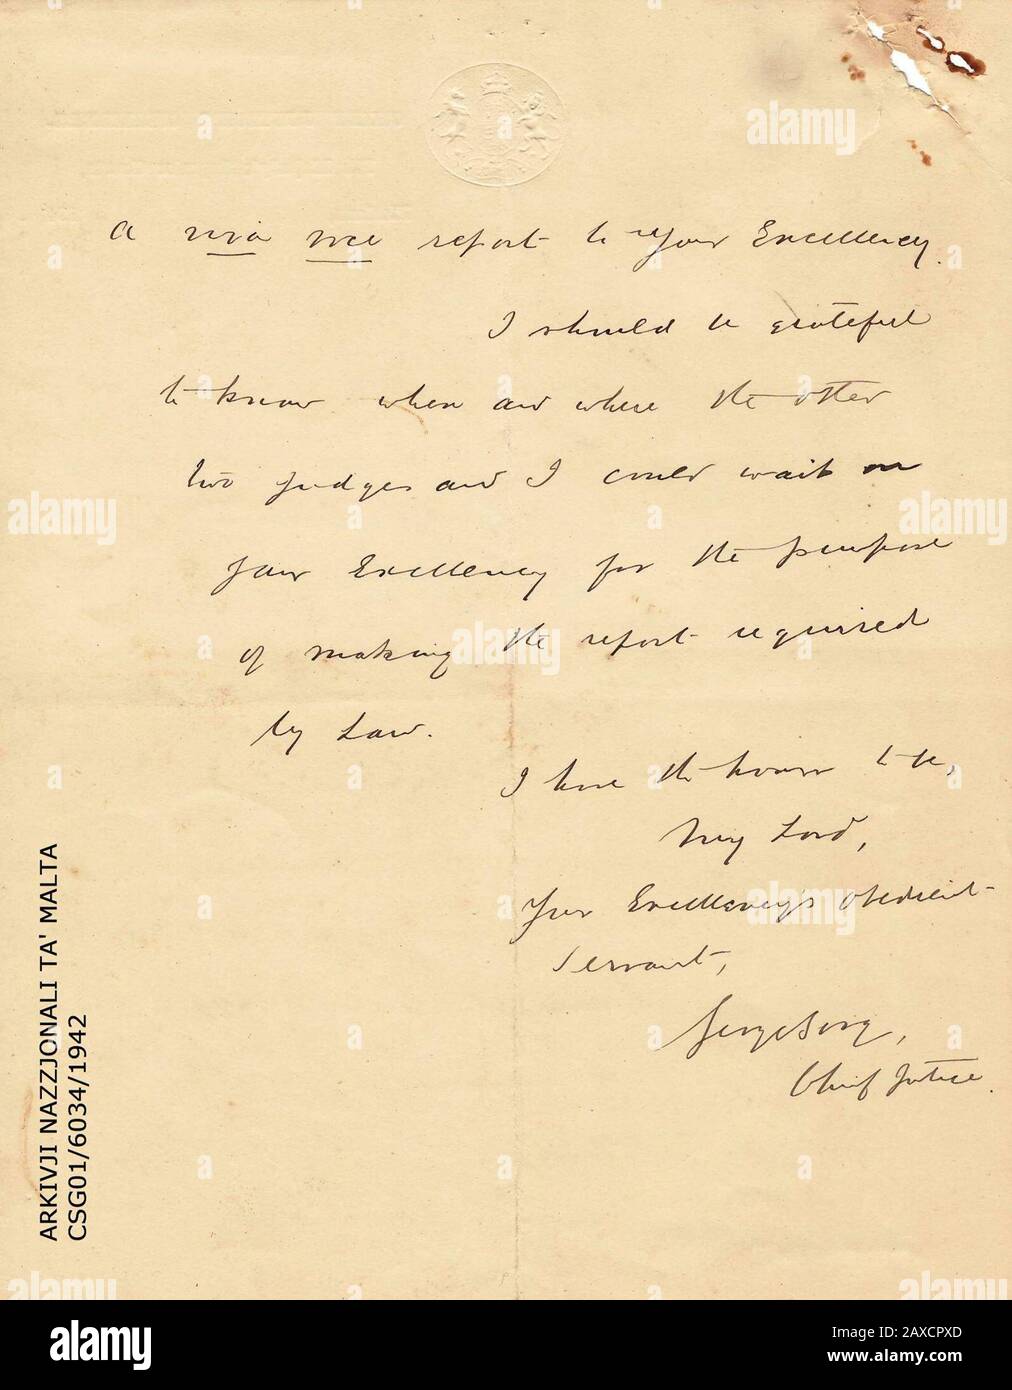 a viva voce report to Your Excellency.
I should be grateful
to know when and where the other
two judges and I could wait on
Your Excellency for the purpose
of making the report required
by Law.
I have the honour to be,
My Lord,
Your Excellency's obedient
servant,
George Borg,
Chief Justice.
ARKIVJI NAZZJONALI TA' MALTA
CSG01/6034/1942
alamy
Image ID: 2AXCPXD
www.alamy.com